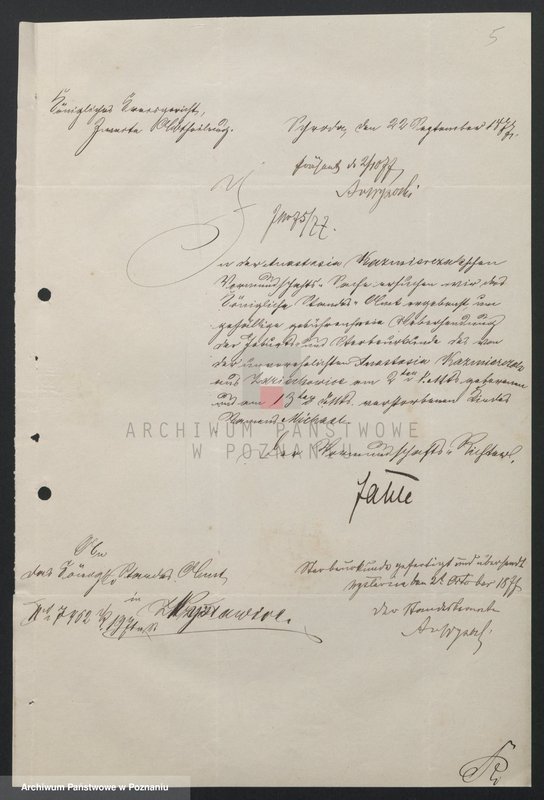 5
Königliches Kreisgericht,
Zweite Abtheilung.
Schroda, den 22 September 1877.
In der Anastasia Kazmierczak'schen
Vormundschafts-Sache ersuchen wir das
Königliche Standes-Amt ergebenst um
gefällige gebührenfreie Uebersendung
der Geburts- und Sterbeurkunde des von
der unverehelichten Anastasia Kazmierczak
aus am 2ten geborenen
und am 13ten verstorbenen Kindes
Namens Michael.
Der Vormundschafts-Richter.
An
das Königl. Standes Amt
in
Sterbeurkunde gefertigt und übersandt
den 2t October 1877
der Standesbeamte
ARCHIWUM PAŃSTWOWE
W POZNANIU
Archiwum Państwowe w Poznaniu